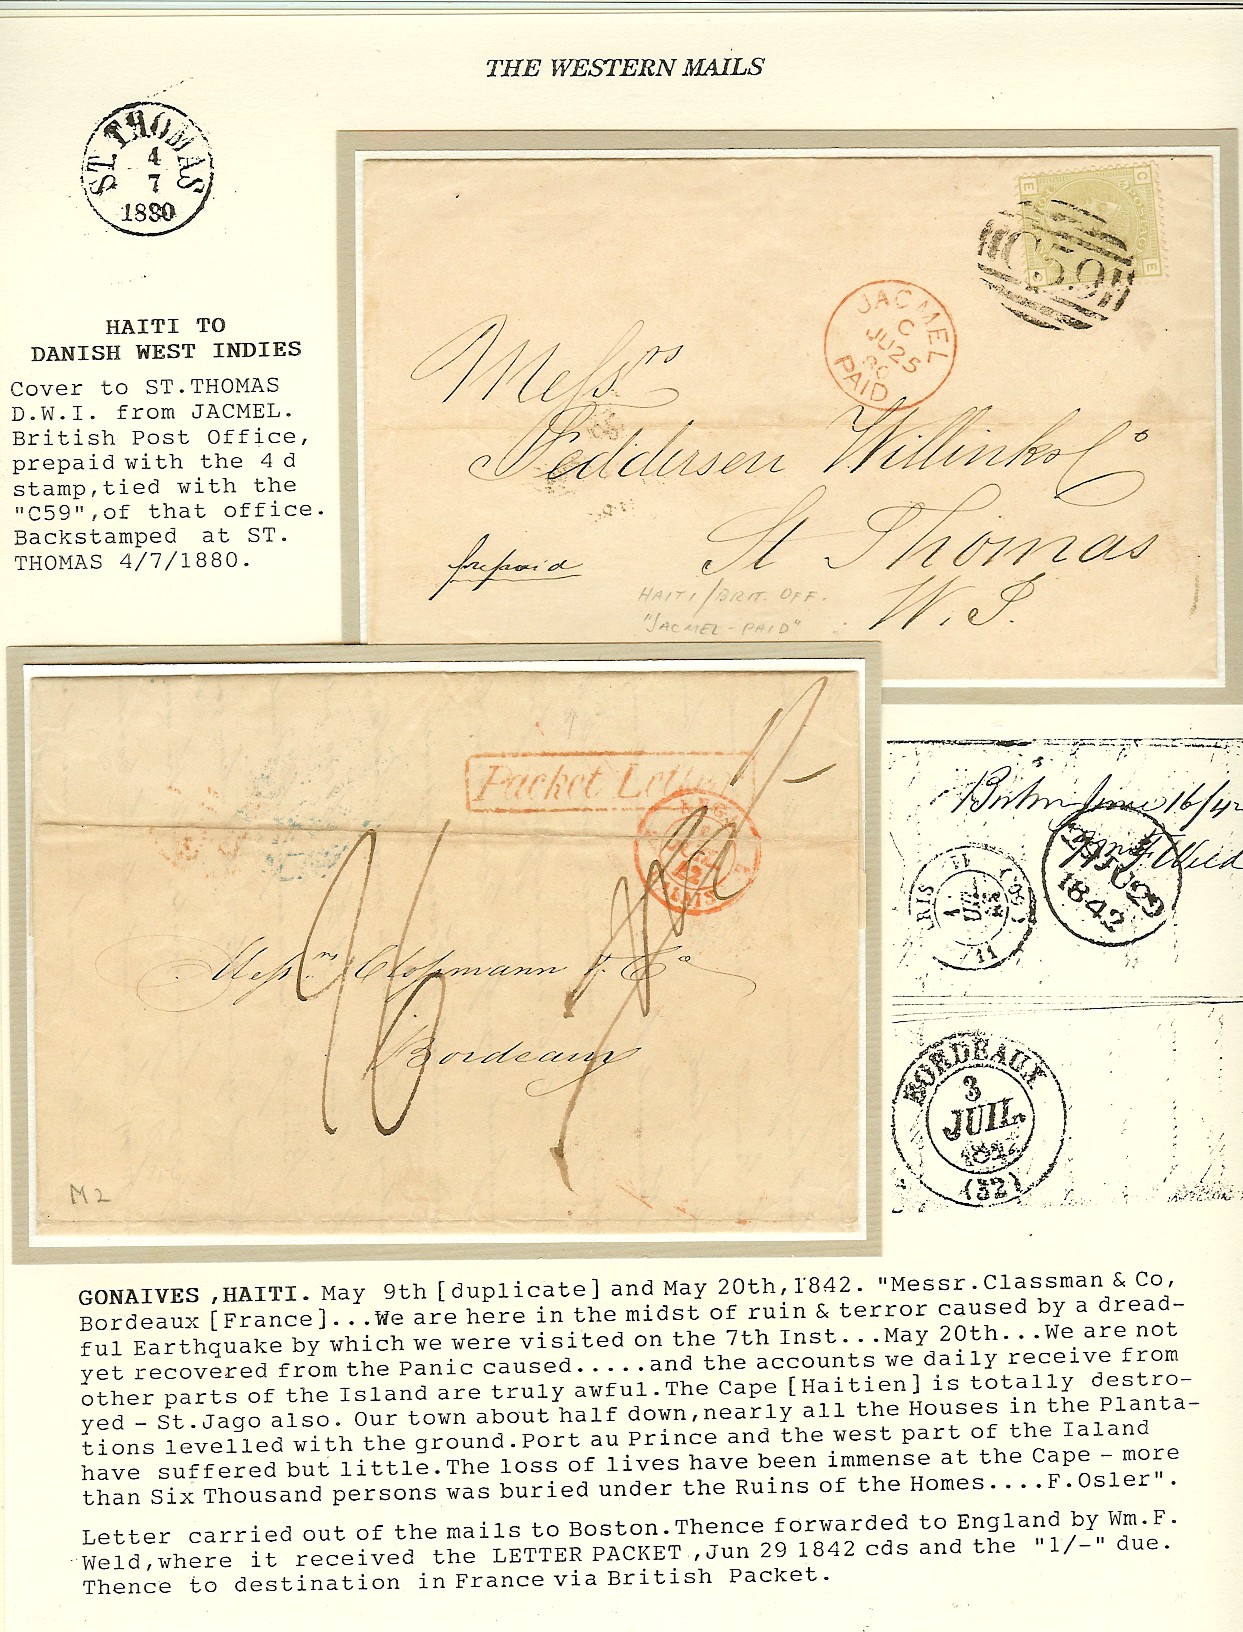 THE WESTERN MAILS
ST. THOMAS
4
7
1880
HAITI TO
DANISH WEST INDIES
Cover to ST.THOMAS
D.W.I. from JACMEL.
British Post Office,
prepaid with the 4 d
stamp,tied with the
"C59",of that office.
Backstamped at ST.
THOMAS 4/7/1880.
C
E
POSTAGE
E
C59
JACMEL
C
JU 25
80
PAID
Messrs
Feddersen Willink & Co
St Thomas
W. I.
prepaid
HAITI/BRIT. OFF.
"JACMEL - PAID"
Packet Letter
1/-
Messrs Clossmann & Co
Bordeaux
M2
Boston June 16/42
Wm F Weld
29 JU 29
1842
BORDEAUX
3
JUIL.
1842
(32)
GONAIVES ,HAITI. May 9th [duplicate] and May 20th,1842. "Messr.Classman & Co,
Bordeaux [France]...We are here in the midst of ruin & terror caused by a dread-
ful Earthquake by which we were visited on the 7th Inst...May 20th...We are not
yet recovered from the Panic caused.....and the accounts we daily receive from
other parts of the Island are truly awful.The Cape [Haitien] is totally destro-
yed - St.Jago also. Our town about half down,nearly all the Houses in the Planta-
tions levelled with the ground.Port au Prince and the west part of the Ialand
have suffered but little.The loss of lives have been immense at the Cape - more
than Six Thousand persons was buried under the Ruins of the Homes....F.Osler".
Letter carried out of the mails to Boston.Thence forwarded to England by Wm.F.
Weld,where it received the LETTER PACKET ,Jun 29 1842 cds and the "1/-" due.
Thence to destination in France via British Packet.